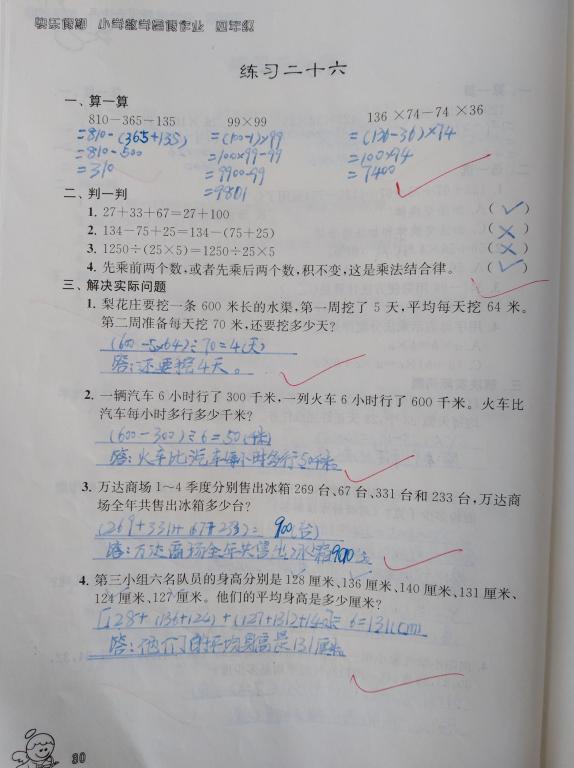 练习二十六
一、算一算
810－365－135 99×99 136×74－74×36
=810-(365+135) =(100-1)×99 =(136-36)×74
=810-500 =100×99-99 =100×74
=310 =9900-99 =7400
=9801
二、判一判
1. 27＋33＋67＝27＋100 (✓)
2. 134－75＋25＝134－(75＋25) (×)
3. 1250÷(25×5)＝1250÷25×5 (×)
4. 先乘前两个数,或者先乘后两个数,积不变,这是乘法结合律。 (✓)
三、解决实际问题
1. 梨花庄要挖一条 600 米长的水渠,第一周挖了 5 天,平均每天挖 64 米。
第二周准备每天挖 70 米,还要挖多少天?
(600-5×64)÷70=4(天)
答:还要挖4天。
2. 一辆汽车 6 小时行了 300 千米,一列火车 6 小时行了 600 千米。火车比
汽车每小时多行多少千米?
(600-300)÷6=50(千米)
答:火车比汽车每小时多行50千米
3. 万达商场 1～4 季度分别售出冰箱 269 台、67 台、331 台和 233 台,万达商
场全年共售出冰箱多少台?
(269+331)+(67+233)=900(台)
答:万达商场全年共售出冰箱900台
4. 第三小组六名队员的身高分别是 128 厘米、136 厘米、140 厘米、131 厘米、
124 厘米、127 厘米。他们的平均身高是多少厘米?
[128+(136+124)+(127+131+140)]÷6=131(cm
答:他们的平均身高是131厘米
30